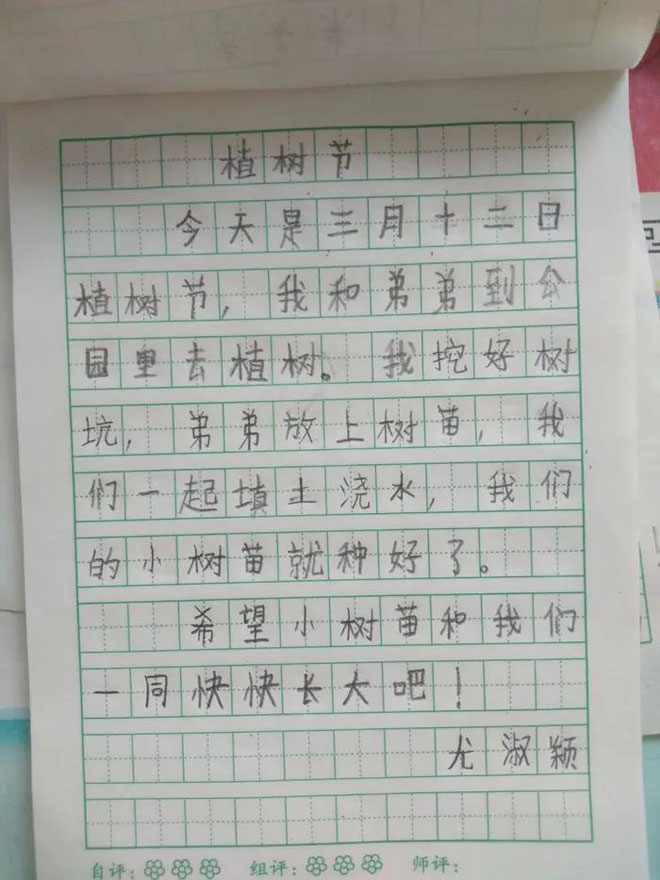 植树节
今天是三月十二日
植树节，我和弟弟到公
园里去植树。我挖好树
坑，弟弟放上树苗，我
们一起填土浇水，我们
的小树苗就种好了。
希望小树苗和我们
一同快快长大吧！
尤淑颖
自评： 组评： 师评：